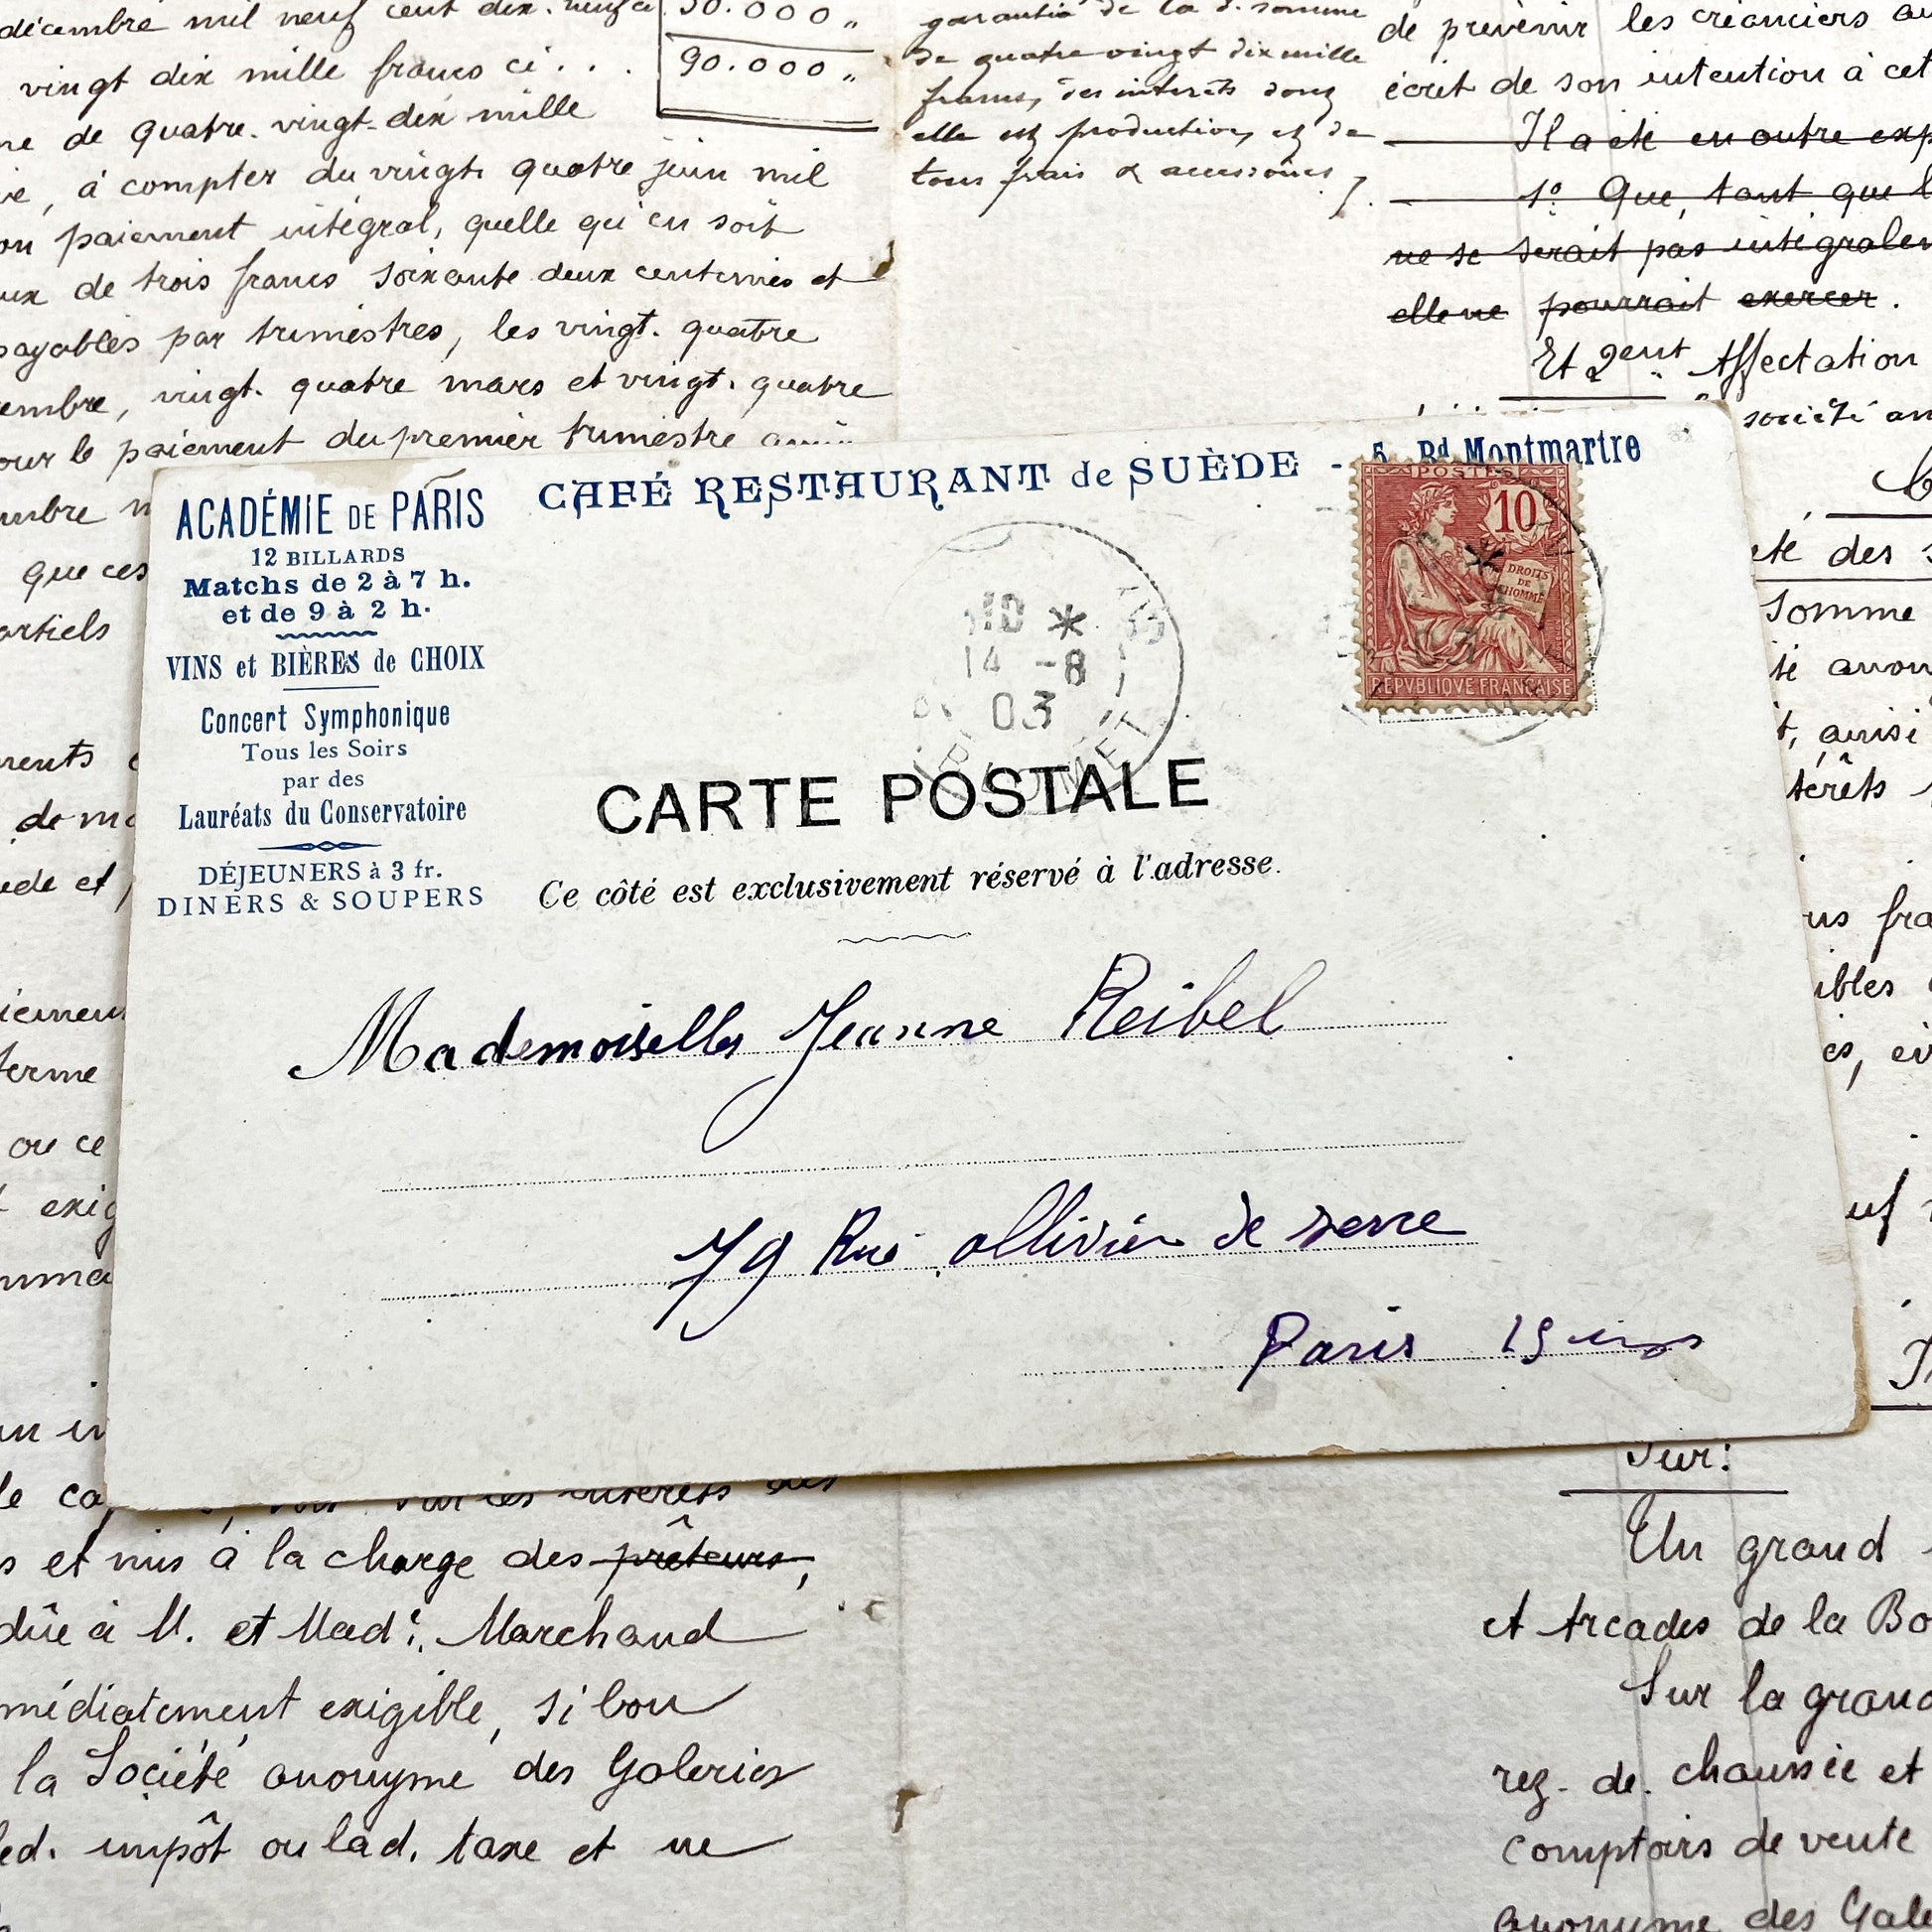 décembre mil neuf cent dix-neuf ci
50.000 "
vingt dix mille francs ci . . .
90.000 "
de quatre-vingt-dix mille
, à compter du vingt quatre juin mil
paiement intégral, quelle qu'en soit
de trois francs soixante deux centimes et
payables par trimestres, les vingt-quatre
embre, vingt-quatre mars et vingt-quatre
our le paiement du premier trimestre
que ces
garantie de la d. somme
de quatre vingt dix mille
francs, des intérêts dont
elle est productive, et de
tous frais & accessoires
de prévenir les créanciers
écrit de son intention à cet
Il a été en outre exp
1º Que, tant que l
ne se serait pas intégralem
elle ne pourrait exercer.
Et 2ent Affectation
société an
été des
somme
, ainsi
térêts
CAFÉ RESTAURANT de SUÈDE - 5, Bd Montmartre
ACADÉMIE DE PARIS
12 BILLARDS
Matchs de 2 à 7 h.
et de 9 à 2 h.
VINS et BIÈRES de CHOIX
Concert Symphonique
Tous les Soirs
par des
Lauréats du Conservatoire
DÉJEUNERS à 3 fr.
DINERS & SOUPERS
POSTES
10
DROITS
DE
L'HOMME
REPVBLIQVE FRANÇAISE
14 -8
03
CARTE POSTALE
Ce côté est exclusivement réservé à l'adresse.
Mademoiselle Jeanne Reibel
79 Rue Ollivier de Serre
Paris 15
ou ce
Sur:
et mis à la charge des prêteurs,
dûe à M. et Made. Marchand
médiatement exigible, si bon
la Société anonyme des Galeries
led. impôt ou lad. taxe et ne
Un grand
et Arcades de la Bo
Sur la grand
rez-de-chaussée et
comptoirs de vente
anonyme des Gal